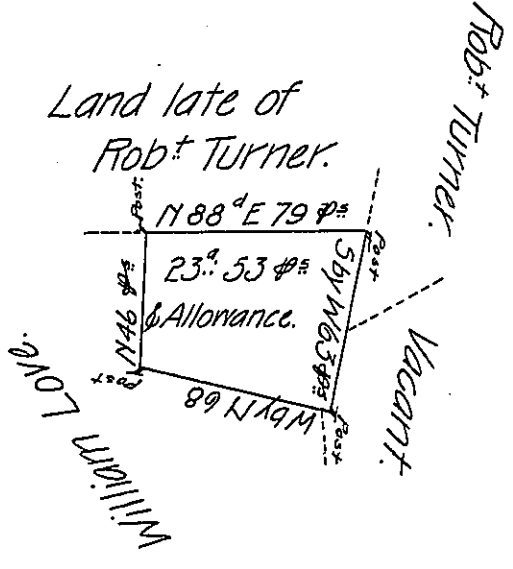 Land late of
Robt Turner.
Robt Turner.
Post.
N 88d E 79 Ps
Post
23a: 53 Ps
& Allowance.
S by W 63 Ps
Vacant.
N 46 Ps
Post
W by N 68
Post
William Love.